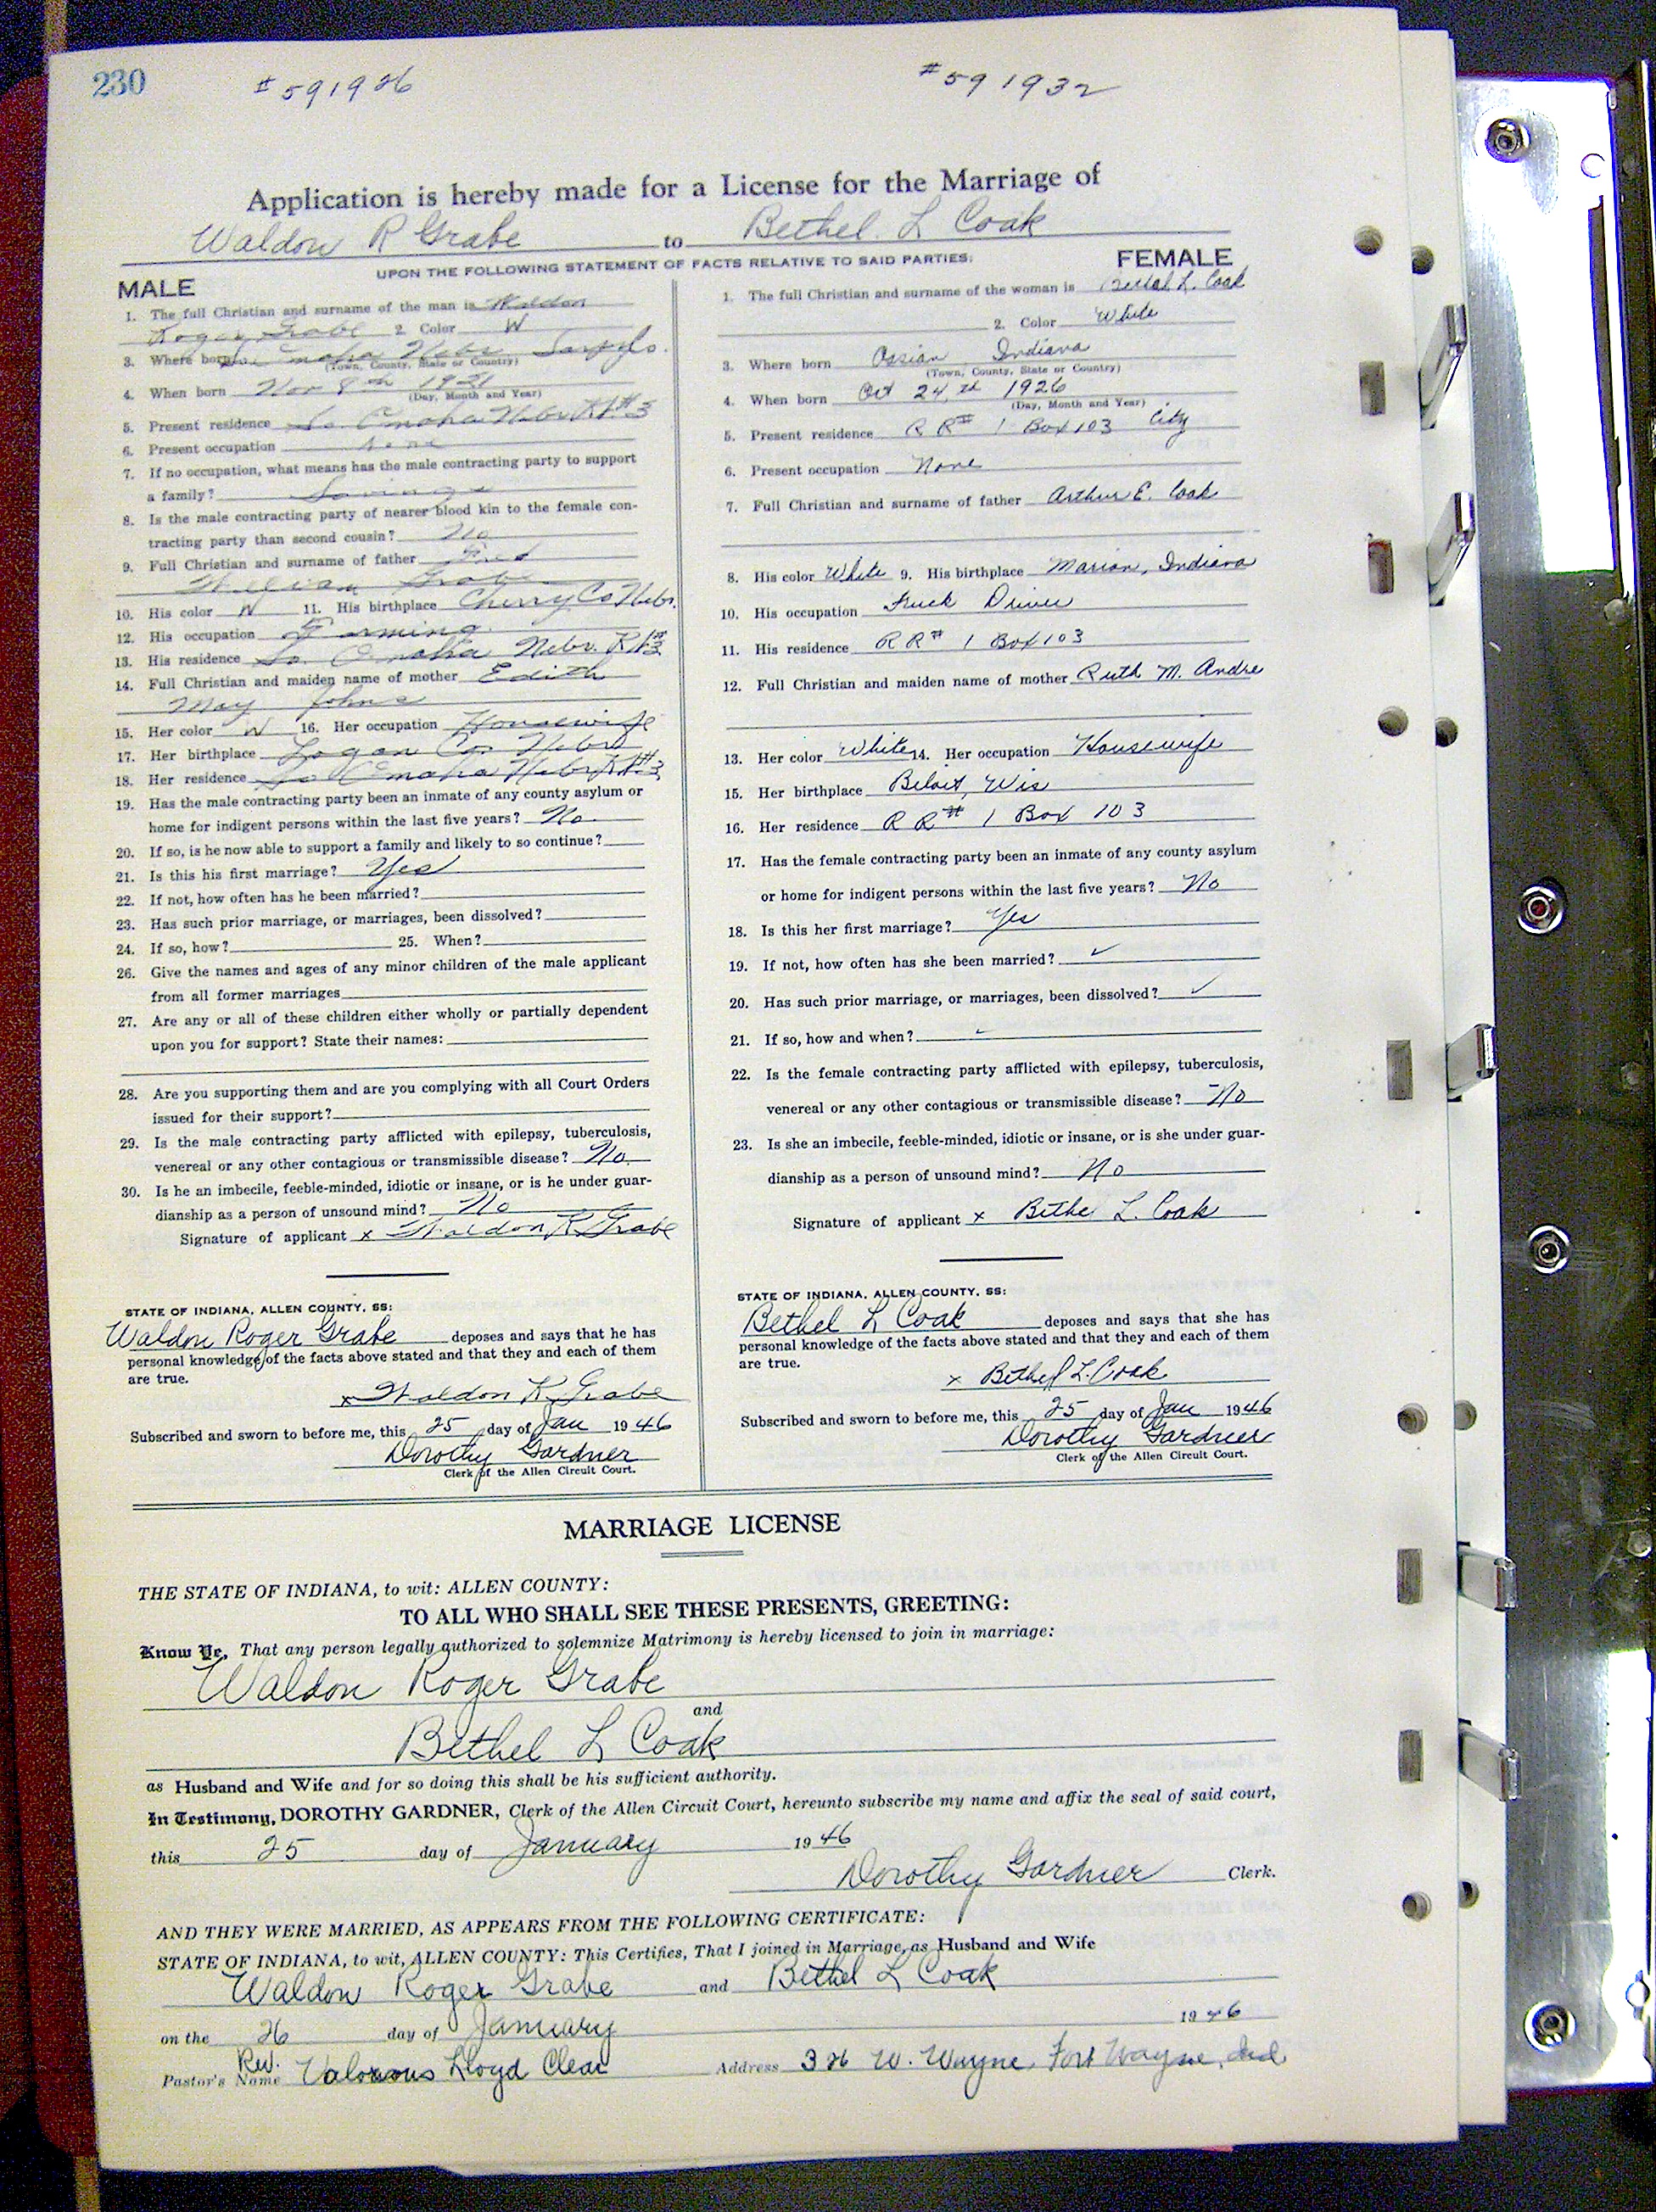 230 # 591926 # 591932
Application is hereby made for a License for the Marriage of
Waldon R Grabe to Bethel L Coak
UPON THE FOLLOWING STATEMENT OF FACTS RELATIVE TO SAID PARTIES:
MALE
1. The full Christian and surname of the man is Waldon
Roger Grabe 2. Color W
3. Where born So. Omaha Nebr Sarpy Co.
(Town, County, State or Country)
4. When born Nov 8th 1921
(Day, Month and Year)
5. Present residence So. Omaha Nebr Rt#3
6. Present occupation None
7. If no occupation, what means has the male contracting party to support
a family? Savings
8. Is the male contracting party of nearer blood kin to the female con-
tracting party than second cousin? No
9. Full Christian and surname of father Fred
William Grabe
10. His color W 11. His birthplace Cherry Co Nebr.
12. His occupation Farming
13. His residence So. Omaha Nebr. Rt#3
14. Full Christian and maiden name of mother Edith
May Johns
15. Her color W 16. Her occupation Housewife
17. Her birthplace Logan Co. Nebr
18. Her residence So Omaha Nebr Rt#3
19. Has the male contracting party been an inmate of any county asylum or
home for indigent persons within the last five years? No.
20. If so, is he now able to support a family and likely to so continue?
21. Is this his first marriage? Yes
22. If not, how often has he been married?
23. Has such prior marriage, or marriages, been dissolved?
24. If so, how? 25. When?
26. Give the names and ages of any minor children of the male applicant
from all former marriages
27. Are any or all of these children either wholly or partially dependent
upon you for support? State their names:
28. Are you supporting them and are you complying with all Court Orders
issued for their support?
29. Is the male contracting party afflicted with epilepsy, tuberculosis,
venereal or any other contagious or transmissible disease? No.
30. Is he an imbecile, feeble-minded, idiotic or insane, or is he under guar-
dianship as a person of unsound mind? No
Signature of applicant x Waldon R Grabe
STATE OF INDIANA, ALLEN COUNTY, SS:
Waldon Roger Grabe deposes and says that he has
personal knowledge of the facts above stated and that they and each of them
are true.
x Waldon R Grabe
Subscribed and sworn to before me, this 25 day of Jan 1946
Dorothy Gardner
Clerk of the Allen Circuit Court.
FEMALE
1. The full Christian and surname of the woman is Bethel L. Coak
2. Color White
3. Where born Ossian Indiana
(Town, County, State or Country)
4. When born Oct 24,th 1926
(Day, Month and Year)
5. Present residence R R# 1 Box 103 City
6. Present occupation None
7. Full Christian and surname of father Arthur E. Coak
8. His color White 9. His birthplace Marion, Indiana
10. His occupation Truck Driver
11. His residence R R# 1 Box 103
12. Full Christian and maiden name of mother Ruth M. Andre
13. Her color White 14. Her occupation Housewife
15. Her birthplace Beloit, Wis
16. Her residence R R# 1 Box 103
17. Has the female contracting party been an inmate of any county asylum
or home for indigent persons within the last five years? No
18. Is this her first marriage? Yes
19. If not, how often has she been married? ✓
20. Has such prior marriage, or marriages, been dissolved? ✓
21. If so, how and when? ✓
22. Is the female contracting party afflicted with epilepsy, tuberculosis,
venereal or any other contagious or transmissible disease? No
23. Is she an imbecile, feeble-minded, idiotic or insane, or is she under guar-
dianship as a person of unsound mind? No
Signature of applicant x Bethe L. Coak
STATE OF INDIANA, ALLEN COUNTY, SS:
Bethel L Coak deposes and says that she has
personal knowledge of the facts above stated and that they and each of them
are true.
x Bethel L. Coak
Subscribed and sworn to before me, this 25 day of Jan 1946
Dorothy Gardner
Clerk of the Allen Circuit Court.
MARRIAGE LICENSE
THE STATE OF INDIANA, to wit: ALLEN COUNTY:
TO ALL WHO SHALL SEE THESE PRESENTS, GREETING:
Know Ye, That any person legally authorized to solemnize Matrimony is hereby licensed to join in marriage:
Waldon Roger Grabe
and
Bethel L Coak
as Husband and Wife and for so doing this shall be his sufficient authority.
In Testimony, DOROTHY GARDNER, Clerk of the Allen Circuit Court, hereunto subscribe my name and affix the seal of said court,
this 25 day of January 1946
Dorothy Gardner Clerk.
AND THEY WERE MARRIED, AS APPEARS FROM THE FOLLOWING CERTIFICATE:
STATE OF INDIANA, to wit, ALLEN COUNTY: This Certifies, That I joined in Marriage, as Husband and Wife
Waldon Roger Grabe and Bethel L Coak
on the 26 day of January 1946
Pastor's Name Rev. Valorous Lloyd Clear Address 326 W. Wayne, Fort Wayne, Ind